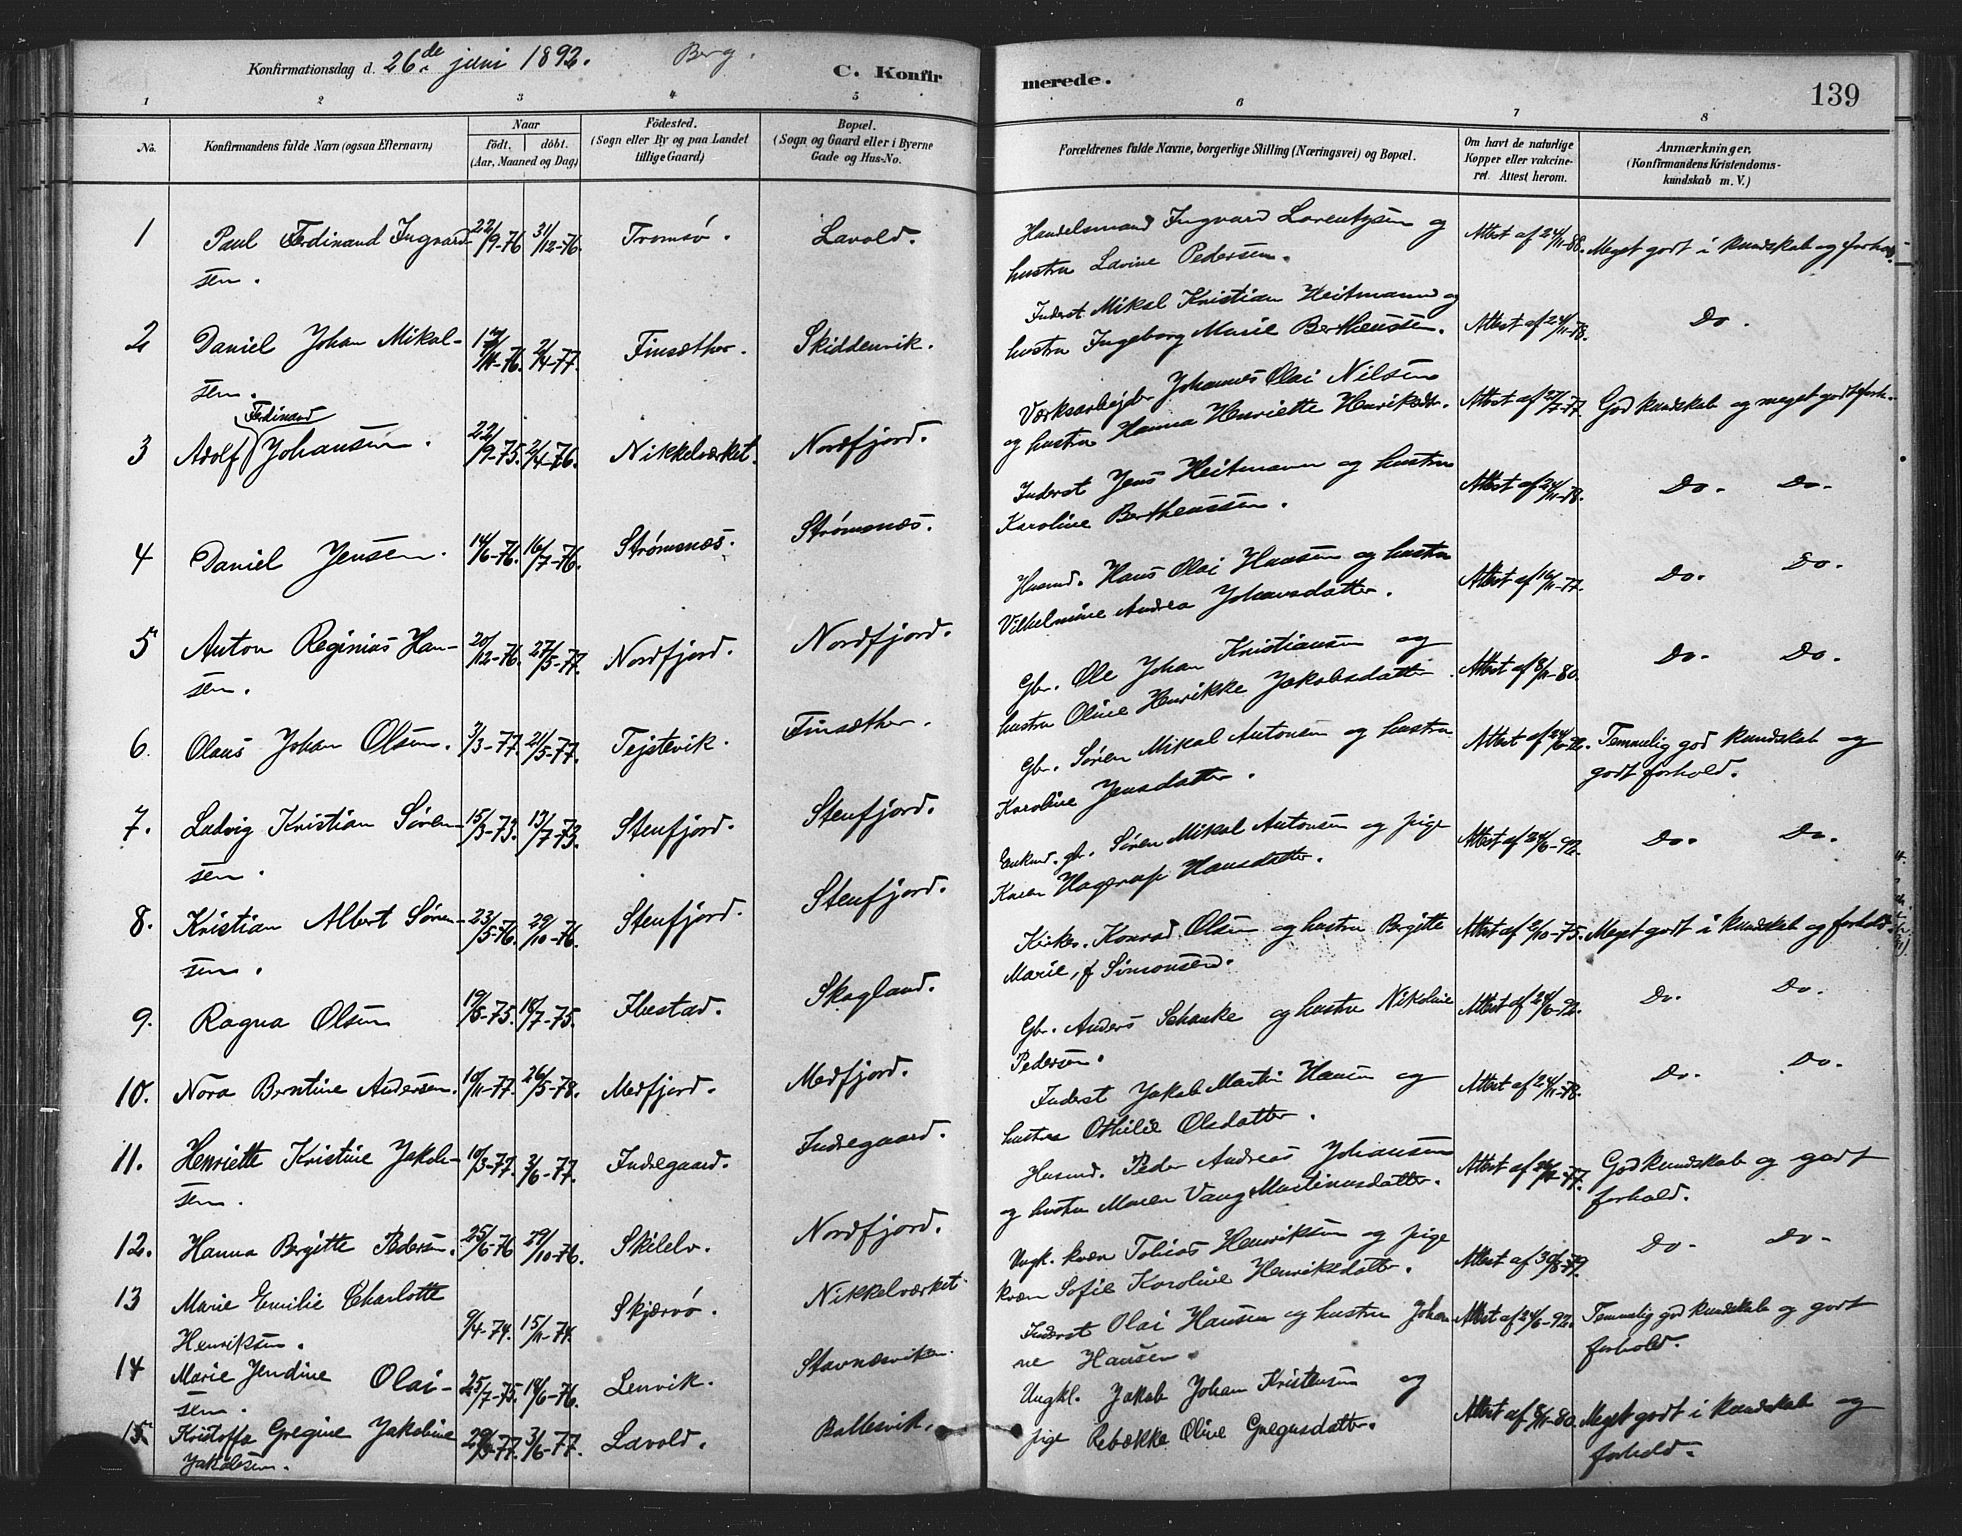 Konfirmationsdag d. 26de juni 1892. Berg. C. Konfirmerede. 139
1 2 3 4 5 6 7 8
No. Konfirmandens fulde Navn (ogsaa Efternavn) Naar født. døbt. (Aar, Maaned og Dag) Fødested. (Sogn eller By og paa Landet tillige Gaard) Bopæl. (Sogn og Gaard eller i Byerne Gade og Hus-No. Forældrenes fulde Navne, borgerlige Stilling (Næringsvei) og Bopæl. Om havt de naturlige Kopper eller vakcineret. Attest herom. Anmærkninger. (Konfirmandens Kristendomskundskab m. V.)
1 Paul Ferdinand Ingvardsen. 22/9-76 31/12-76. Tromsø. Lavold. Handelsmand Ingvard Lorentzen og hustru Lavine Pedersen. Attest af 24/11-88. Meget godt i kundskab og forhold.
2 Daniel Johan Mikalsen. 17/11-76. 2/4-77. Finsæther. Skiddenvik. Inderst Mikal Kristian Heitmann og hustru Ingeborg Marie Bertheussen. Attest af 24/11-78. Do.
3 Adolf Ferdinand Johansen. 22/9-75. 2/4-76. Nikkelværket. Nordfjord. Værksarbejder Johannes Olai Nilsen og hustru Hanna Henriette Henriksdtr. Attest af 27/7-77. God kundskab og meget godt forh.
4 Daniel Jensen. 14/6-76. 16/7-76. Strømsnæs. Strømsnæs. Inderst Jens Heitmann og hustru Karoline Bertheussen. Attest af 24/11-78. Do. Do.
5 Anton Reginius Hansen. 20/12-76. 27/5-77. Nordfjord. Nordfjord. Husmd. Hans Olai Hansen og hustru Vilhelmine Andrea Johansdatter. Attest af 16/11-77. Do. Do.
6. Olaus Johan Olsen. 3/3-77. 21/5-77. Tejstevik. Finsæther. Gbr. Ole Johan Kristiansen og hustru Oline Henrikke Jakobsdatter. Attest af 8/11-80. Do. Do.
7. Ludvig Kristian Sørensen. 15/3-73. 13/7-73. Stenfjord. Stenfjord. Gbr. Søren Mikal Antonsen og hustru Karoline Jensdatter. Attest af 24/6-92. Temmelig god kundskab og godt forhold.
8. Kristian Albert Sørensen. 23/5-76. 29/10-76. Stenfjord. Stenfjord. Enkmd. gbr. Søren Mikal Antonsen og pige Karen Hagerup Hansdatter. Attest af 24/6-92. Do. Do.
9. Ragna Olsen 19/6-75. 18/7-75. Ibestad. Skagland. Kirkes. Konrad Olsen og hustru Bergitte Marie, f Simonsen. Attest af 2/10-75. Meget godt i kundskab og forhold.
10. Nora Berntine Andersen. 10/11-77. 26/5-78. Medfjord. Medfjord. Gbr. Anders Schanke og hustru Nikoline Pedersen. Attest af 24/6-92. Do. Do.
11. Henriette Kristine Jakobsen. 10/3-77. 3/6-77. Indregaard. Indregaard. Inderst Jakob Martin Hansen og hustru Othilie Olsdatter. Attest af 24/11-78. Do. Do.
12. Hanna Bergitte Pedersen. 25/6-76 29/10-76. Skilelv. Nordfjord. Husmd. Peder Andreas Johansen og hustru Maren Vang Martinusdatter. Attest af 77. God kundskab og godt forhold.
13 Marie Emilie Charlotte Henriksen. 9/4-74. 15/11-74. Skjærvø. Nikkelværket. Ungk. kvæn Tobias Henriksen og pige kvæn Sofie Karoline Henriksdatter. Attest af 30/8-79. Do. Do.
14 Marie Jendine Olaisen. 25/7-75. 18/6-76. Lenvik. Stavnæsviken. Inderst Olai Hansen og hustru Johanne Hansen. Attest af 24/6-92. Temmelig god kundskab og godt forhold.
15. Kristoffa Gregine Jakobine Jakobsen. 77. 3/6-77. Lavold. Ballesvik. Ungkl. Jakob Johan Kristensen og pige Rebække Oline Gregusdatter. Attest af 8/11-80. Meget godt i kundskab og forhold.